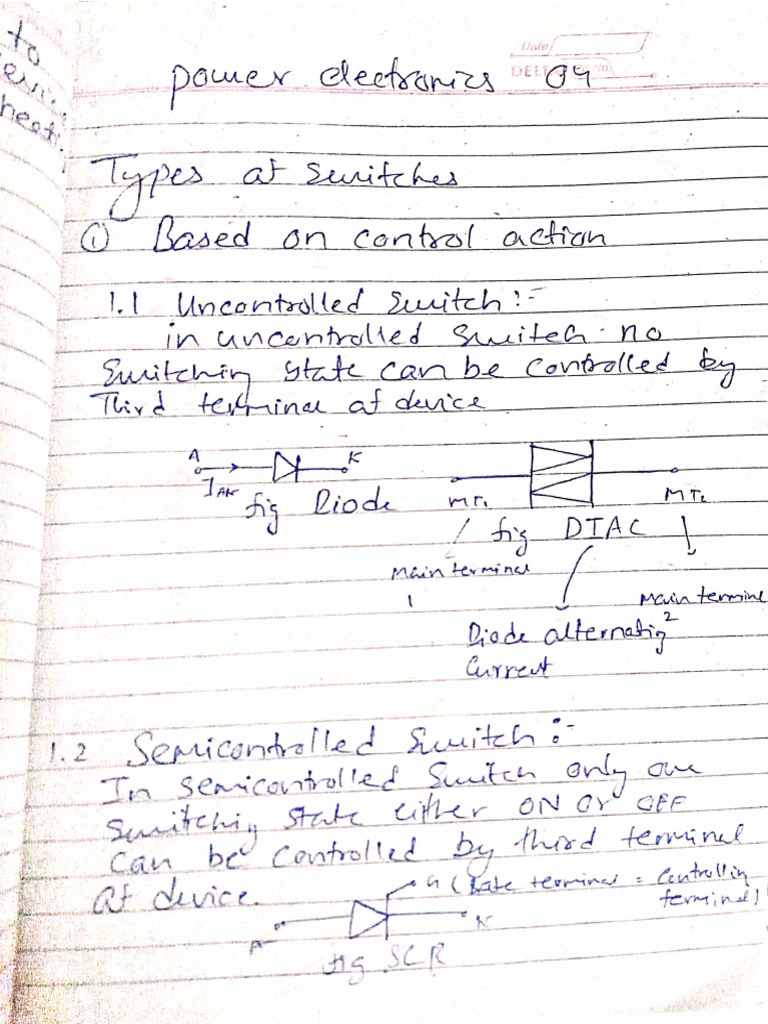 to
Date
DELTA
power electronics 04
Types of Switches
① Based on control action
1.1 Uncontrolled Switch :-
in uncontrolled switch no
Switching state can be controlled by
Third terminal of device
A K
IAK
fig Diode
MT1 MT2
fig DIAC
Main terminal
1
Main termine
2
Diode alternatig
Current
1.2 Semicontrolled Switch :-
In semicontrolled Switch only one
switching state either ON or OFF
can be controlled by third terminal
of device.
G (Gate terminal = Controlling
terminal)
A K
fig SCR